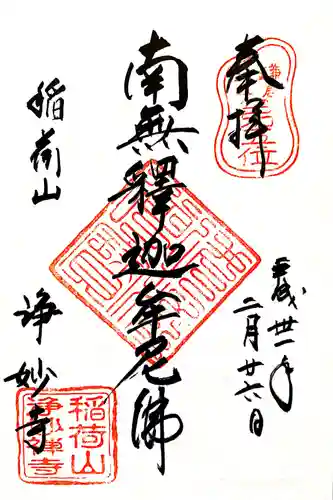 奉拝
平成卅一年
二月廿六日
南無釋迦牟尼佛
稲荷山
浄妙寺
稲荷山
浄妙禅寺